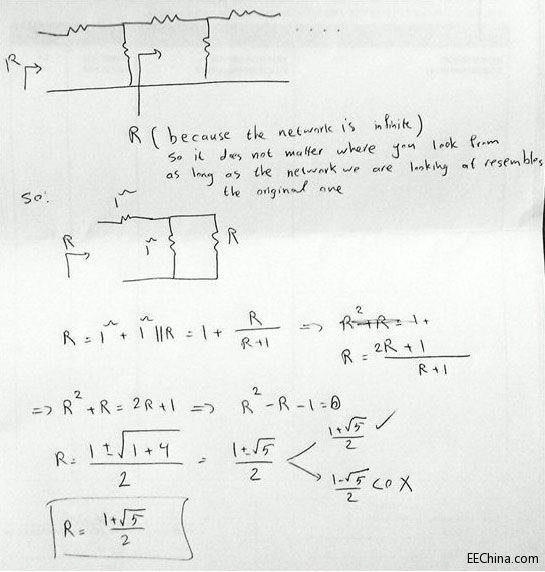 R
R (because the network is infinite)
so it does not matter where you look from
as long as the network we are looking at resembles
the original one
So:
1Ω
R
1Ω
R
R = 1Ω + 1Ω ||R = 1 + R/(R+1) => R² + R = 1 +
R = (2R + 1)/(R + 1)
=> R² + R = 2R + 1 => R² - R - 1 = 0
R = (1 ± √(1 + 4))/2 = (1 ± √5)/2
(1+√5)/2 ✓
(1-√5)/2 <0 X
R = (1+√5)/2
EEChina.com